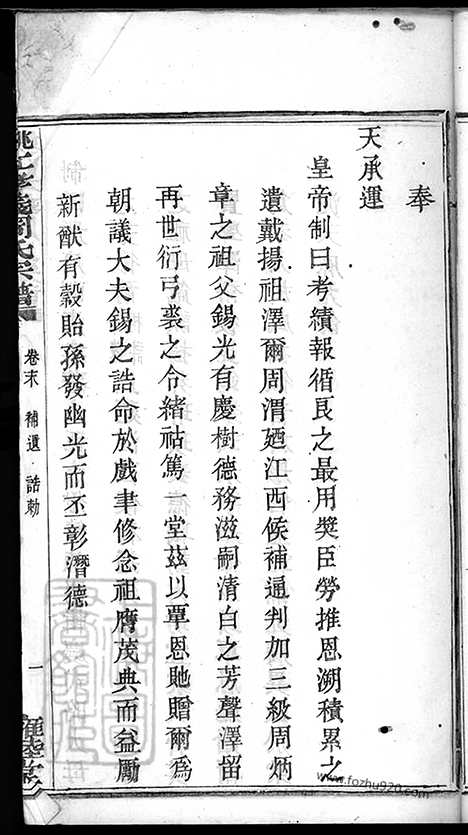 奉
天承運
皇帝制曰考績報循良之最用獎臣勞推恩溯積累之
遺戴揚祖澤爾周渭廼江西候補通判加三級周炳
章之祖父錫光有慶樹德務滋嗣清白之芳聲澤留
再世衍弓裘之令緒祜篤一堂茲以覃恩貤贈爾為
朝議大夫錫之誥命於戲聿修念祖膺茂典而益勵
新猷有穀貽孫發幽光而丕彰潛德
周氏宗譜
卷末 補遺 誥勅
一
www.fozhu920.com